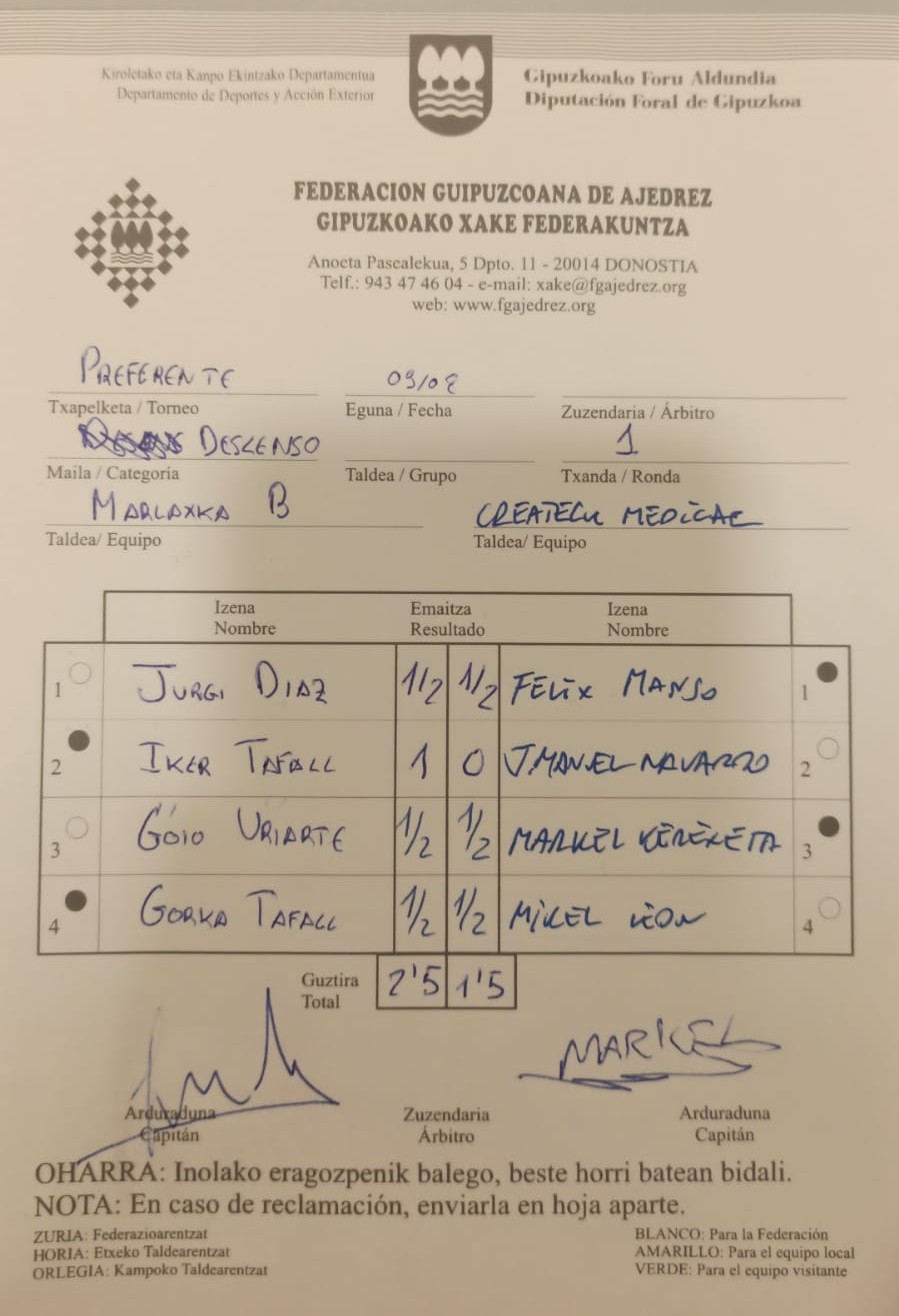 Kiroletako eta Kanpo Ekintzako Departamentua
Departamento de Deportes y Acción Exterior
Gipuzkoako Foru Aldundia
Diputación Foral de Gipuzkoa
FEDERACION GUIPUZCOANA DE AJEDREZ
GIPUZKOAKO XAKE FEDERAKUNTZA
Anoeta Pasealekua, 5 Dpto. 11 - 20014 DONOSTIA
Telf.: 943 47 46 04 - e-mail: xake@fgajedrez.org
web: www.fgajedrez.org
PREFERENTE 09/02
Txapelketa / Torneo Eguna / Fecha Zuzendaria / Árbitro
DESCENSO 1
Maila / Categoría Taldea / Grupo Txanda / Ronda
MARLAXKA B CREATECH MEDICAL
Taldea/ Equipo Taldea/ Equipo
Izena Emaitza Izena
Nombre Resultado Nombre
1 JURGI DIAZ 1/2 1/2 FELIX MANSO 1
2 IKER TAFALL 1 0 J.MANUEL NAVARRO 2
3 GOIO URIARTE 1/2 1/2 MARKEL KEREXETA 3
4 GORKA TAFALL 1/2 1/2 MIKEL LEON 4
Guztira 2'5 1'5
Total
MARKEL
Arduraduna Zuzendaria Arduraduna
Capitán Árbitro Capitán
OHARRA: Inolako eragozpenik balego, beste horri batean bidali.
NOTA: En caso de reclamación, enviarla en hoja aparte.
ZURIA: Federazioarentzat BLANCO: Para la Federación
HORIA: Etxeko Taldearentzat AMARILLO: Para el equipo local
ORLEGIA: Kampoko Taldearentzat VERDE: Para el equipo visitante